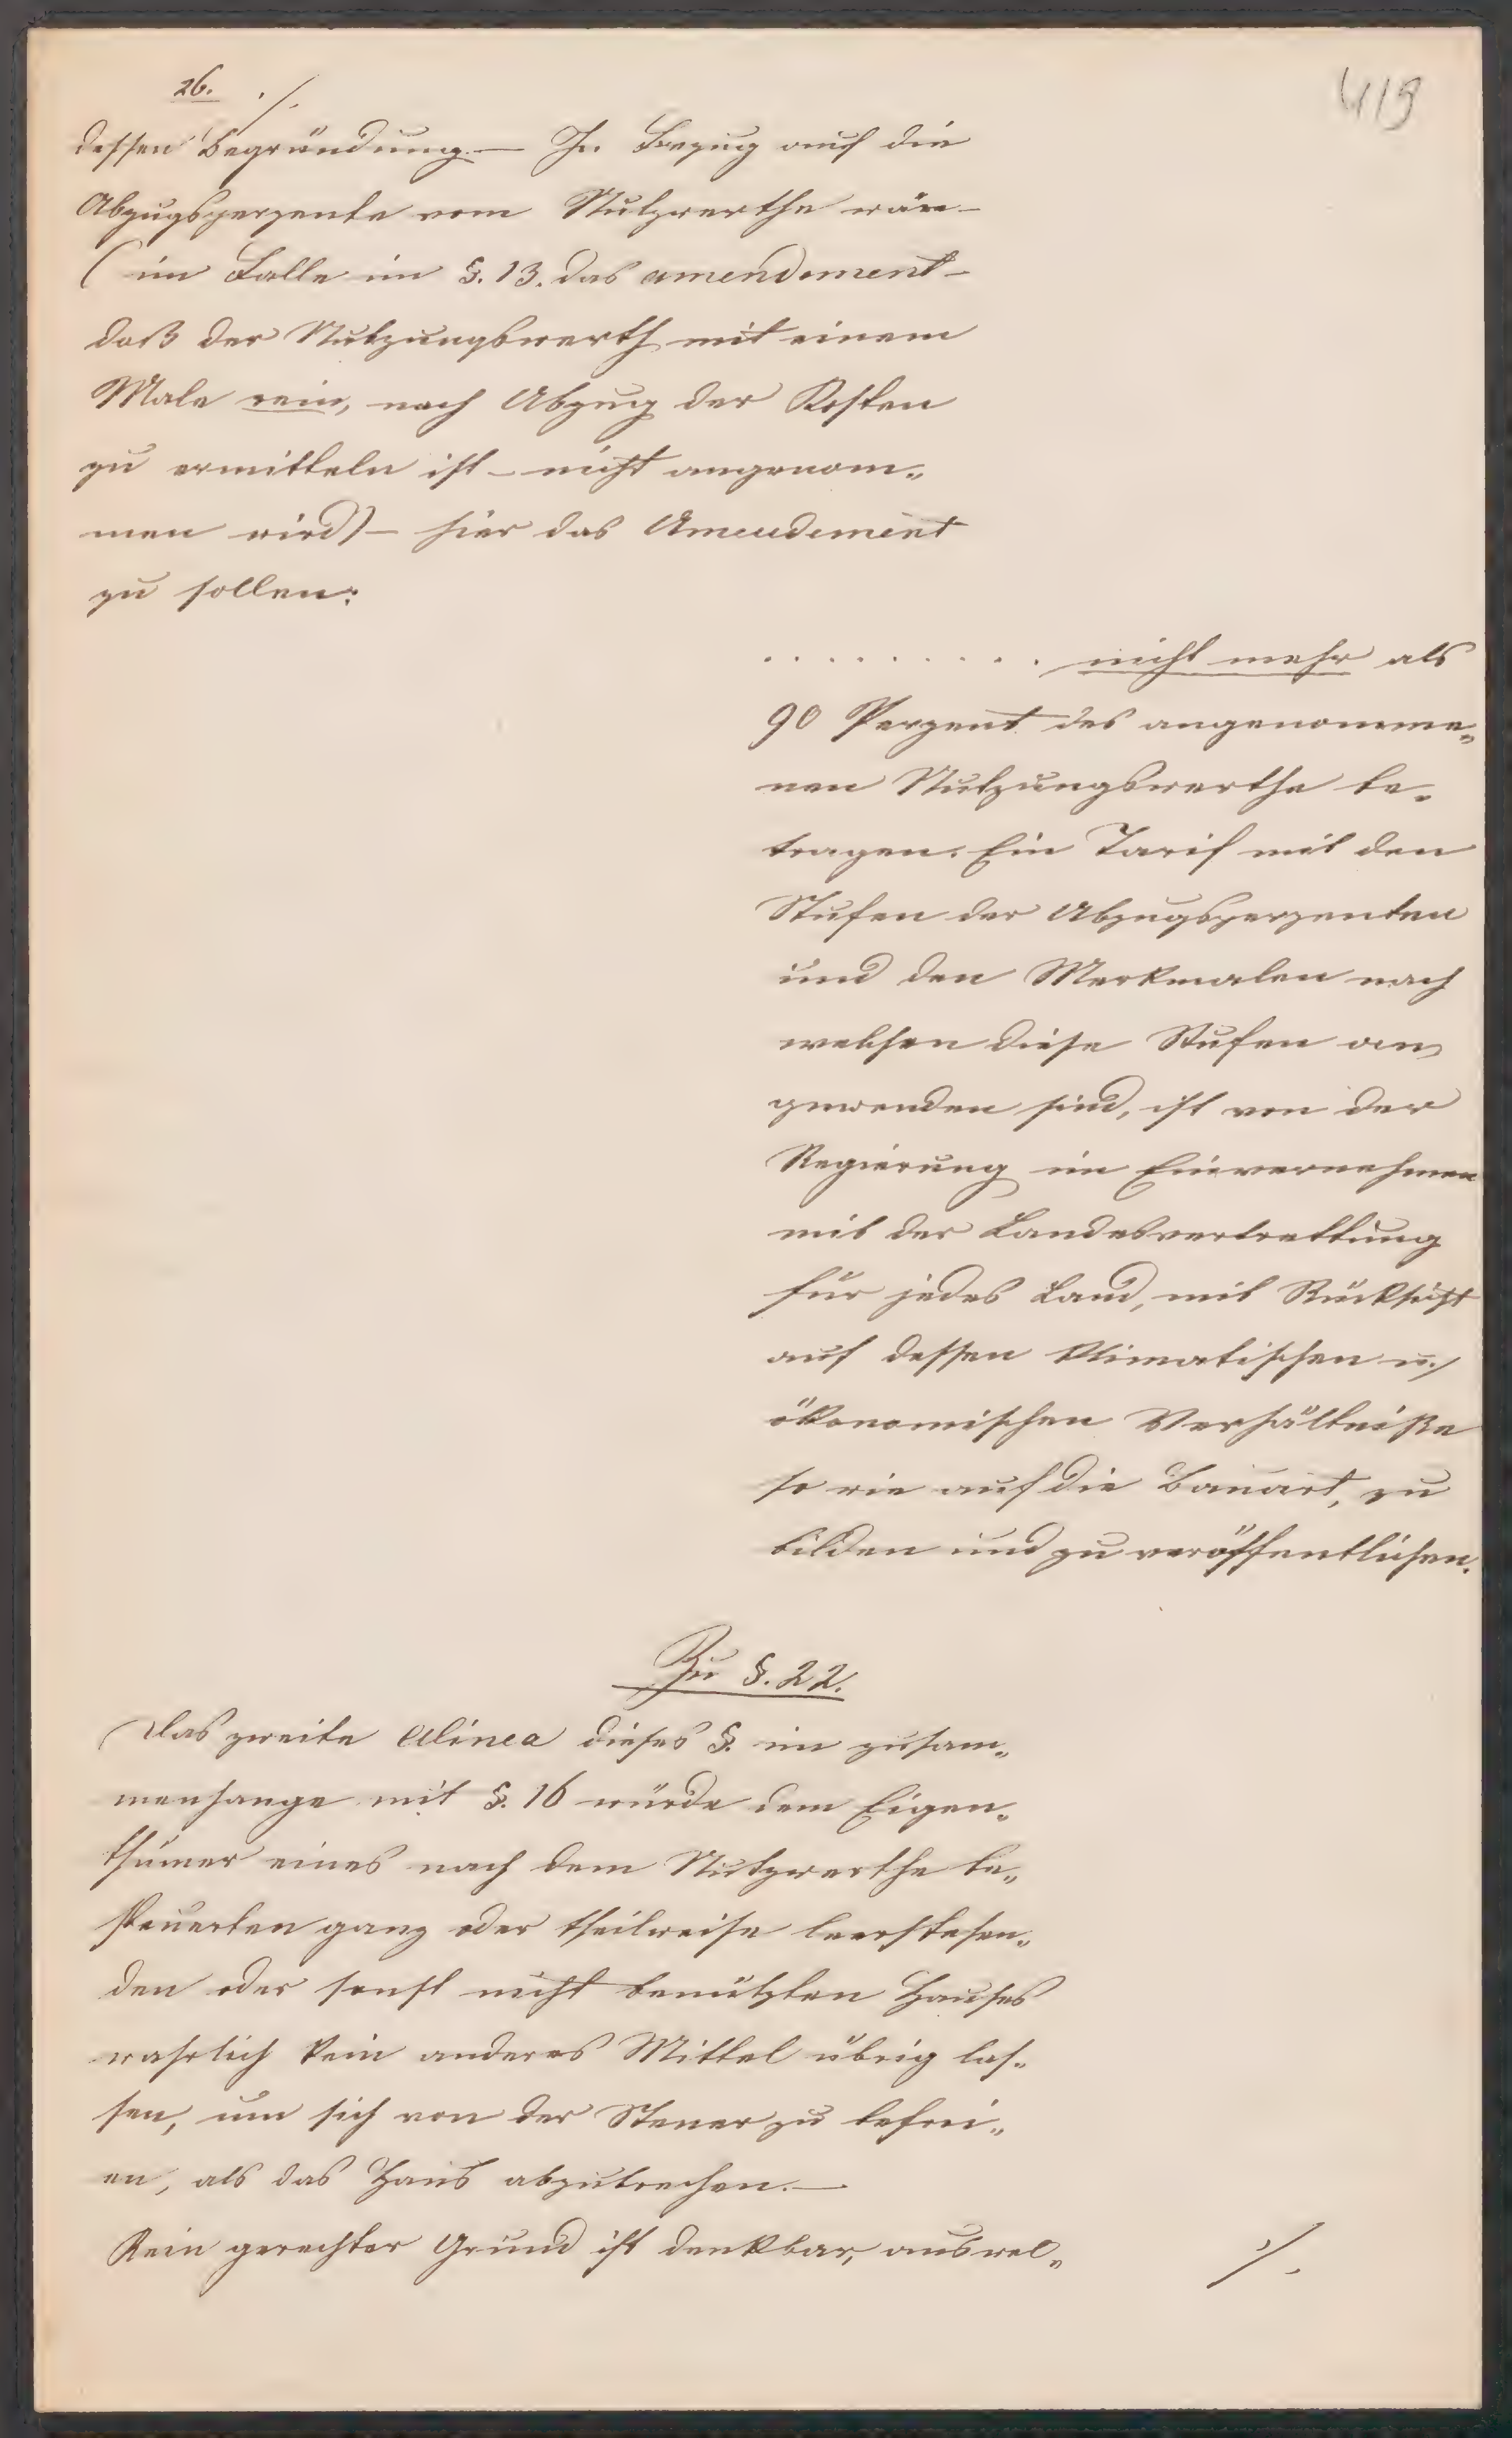 26. ./.
419
dessen Begründung. — In Bezug auf die
Abzugsperzente vom Nutzwerthe wäre —
(im Falle im §. 13. das amendement —
daß der Nutzungswerth mit einem
Male rein, nach Abzug der Kosten
zu ermitteln ist — nicht angenom„
men wird) — hier das Amendement
zu sollen:
. . . . . . . . . . nicht mehr als
90 Perzent des angenomme„
nen Nutzungswerthe be„
tragen. Ein Tarif mit den
Stufen der Abzugsperzenten
und den Merkmalen nach
welchen diese Stufen an
zuwenden sind, ist von der
Regierung im Einvernehmen
mit der Landesvertrettung
für jedes Land, mit Rücksicht
auf dessen klimatischen u./
ökonomischen Verhältniße
so wie auf die Bauart, zu
bilden und zu veröffentlichen.
Zu §. 22.
Das zweite Alinea dieses §. im zusam„
menhange mit §. 16 würde dem Eigen„
thümer eines nach dem Nutzwerthe be„
steuerten ganz oder theilweise leerstehen„
den oder sonst nicht benützten Hauses
wahrlich kein anderes Mittel übrig las„
sen, um sich von der Steuer zu befrei„
en, als das Haus abzubrechen. —
Kein gerechter Grund ist denkbar, aus wel„
./.